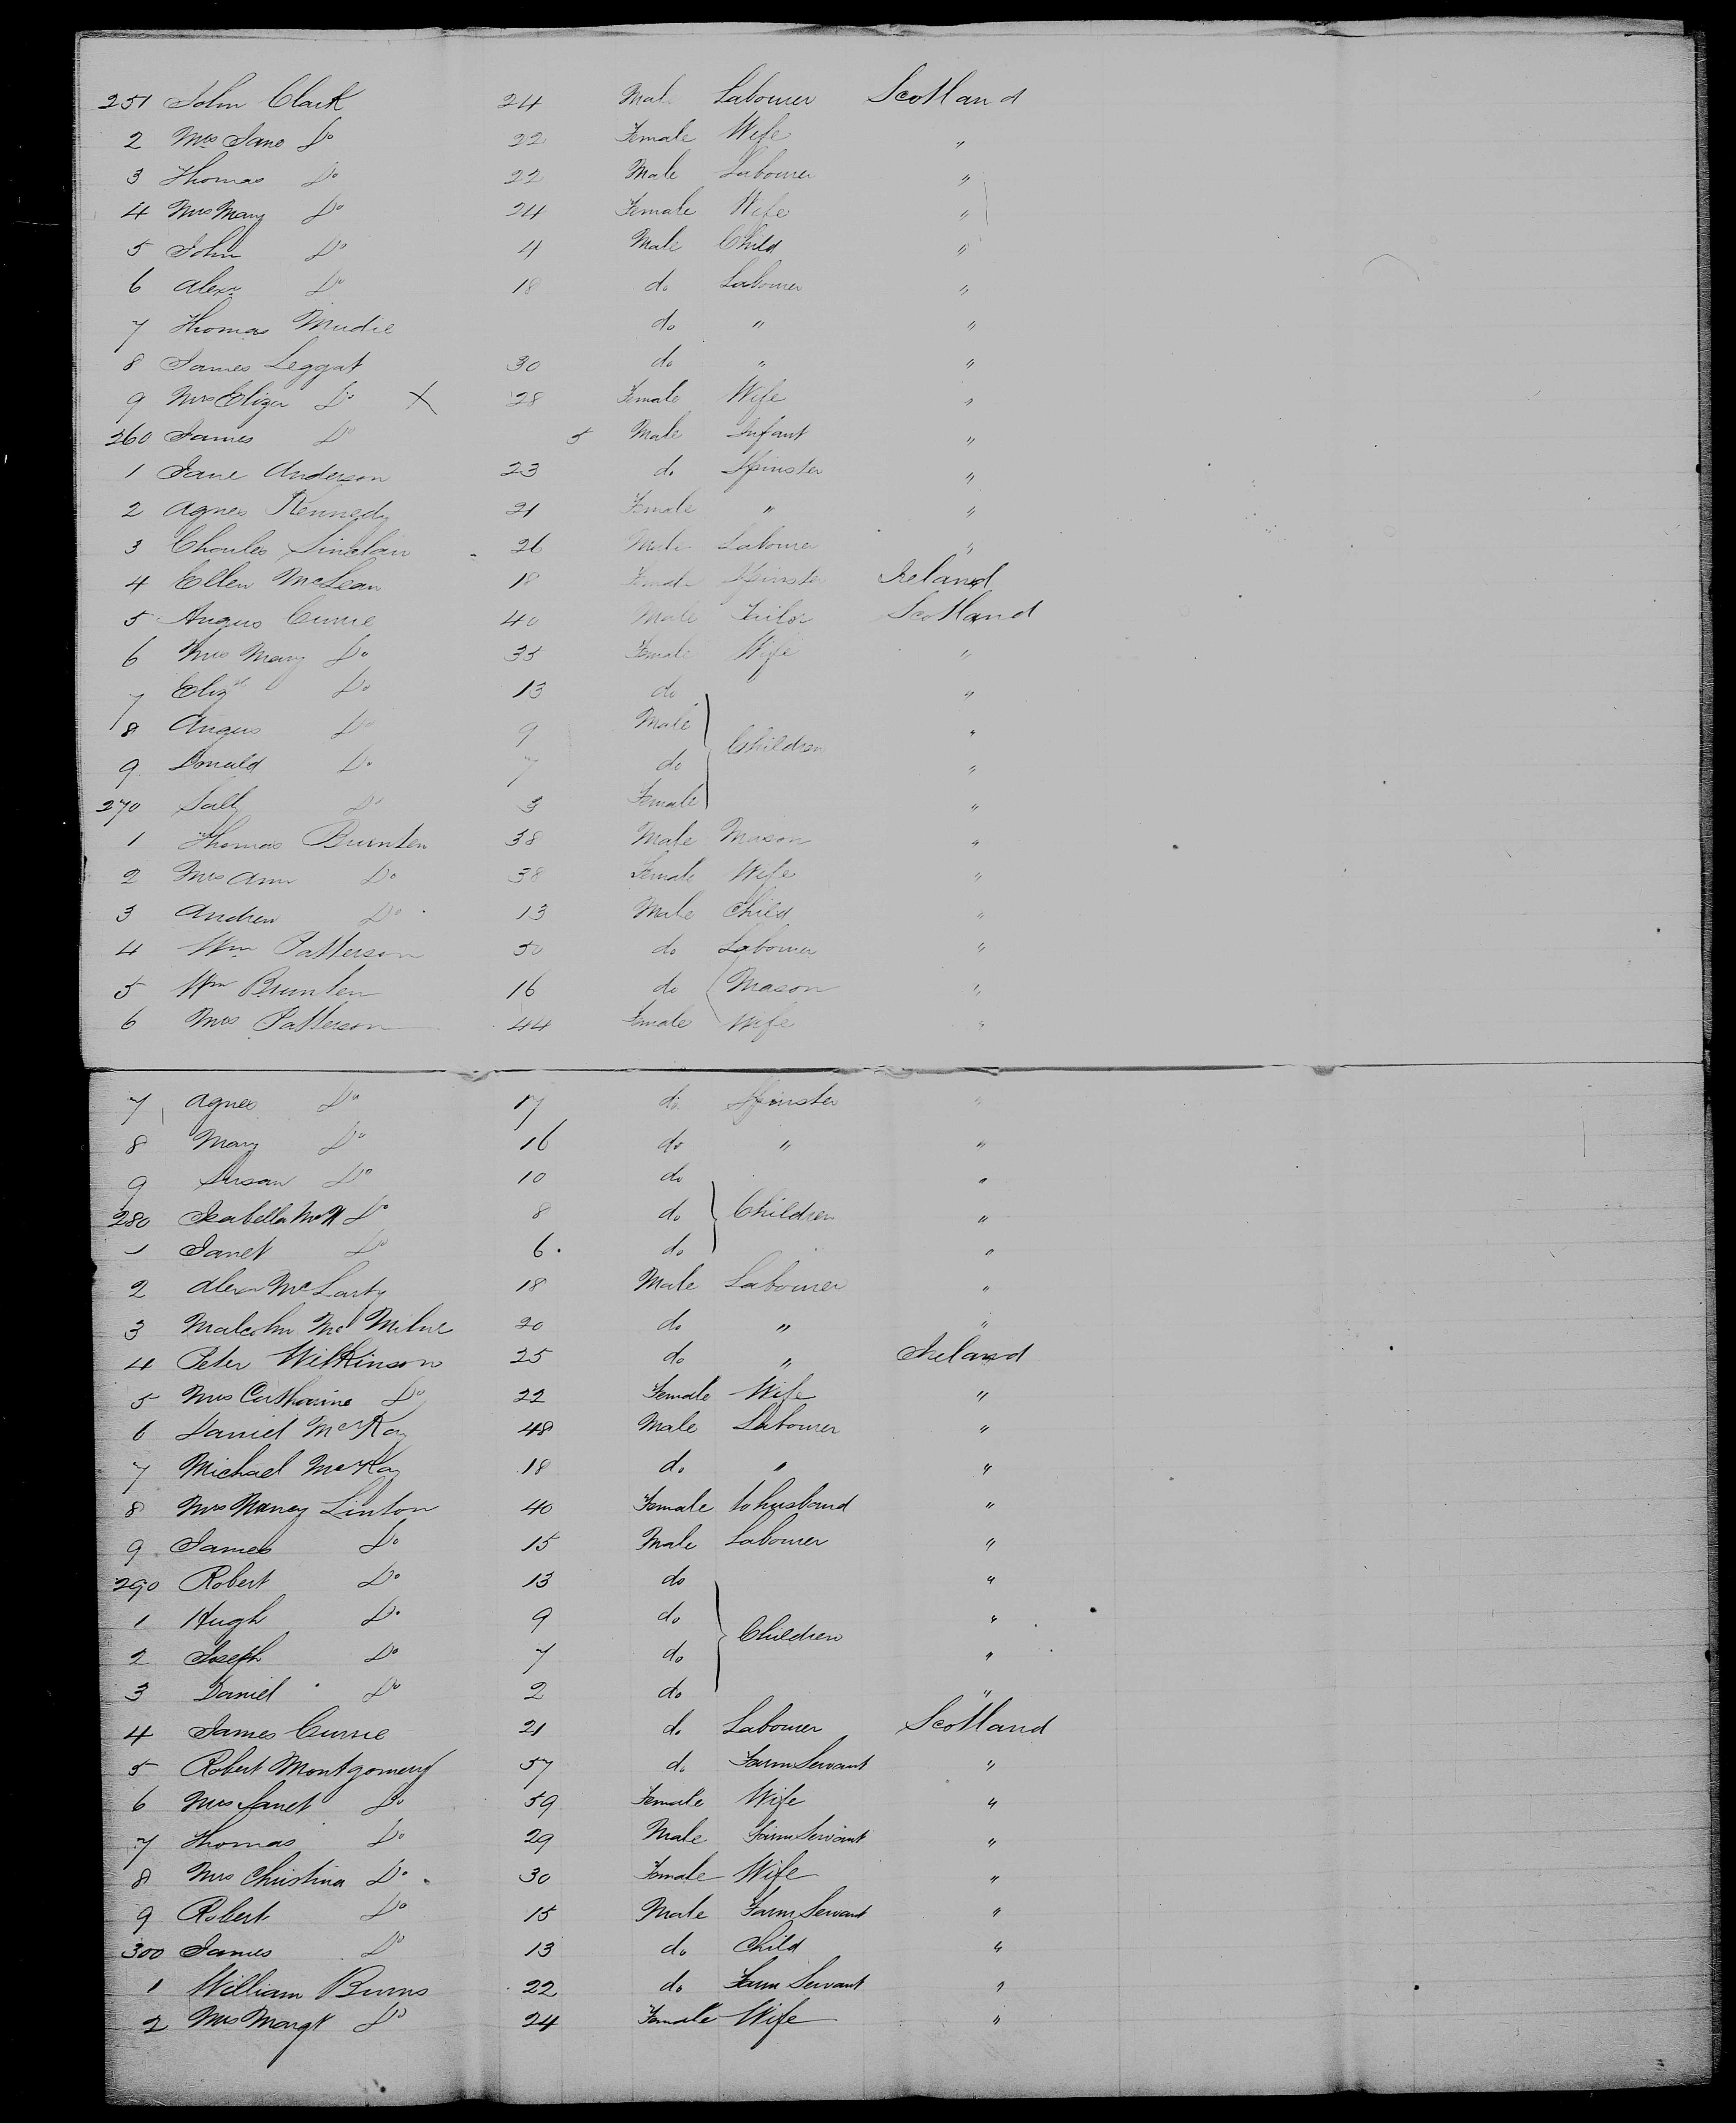 251 John Clark 24 Male Labourer Scotland
2 Mrs Jane Do 22 Female Wife "
3 Thomas Do 22 Male Labourer "
4 Mrs Mary Do 24 Female Wife "
5 John Do 4 Male Child "
6 Alexr Do 18 do Labourer "
7 Thomas Mudie do " "
8 James Leggat 30 do " "
9 Mrs Eliza Do X 28 Female Wife "
260 James Do 5 Male Infant "
1 Jane Anderson 23 do Spinster "
2 Agnes Kennedy 21 Female " "
3 Charles Sinclair 26 Male Labourer "
4 Ellen McLean 18 Female Spinster Ireland
5 Angus Currie 40 Male Tailor Scotland
6 Mrs Mary Do 35 Female Wife "
7 Elizth Do 13 do "
8 Angus Do 9 Male Children "
9 Donald Do 7 do "
270 Sally Do 3 Female "
1 Thomas Brunten 38 Male Mason "
2 Mrs Ann Do 38 Female Wife "
3 Andrew Do 13 Male Child "
4 Wm Patterson 50 do Labourer "
5 Wm Brunten 16 do Mason "
6 Mrs Patterson 44 Female Wife "
7 Agnes Do 17 do Spinster "
8 Mary Do 16 do " "
9 Susan Do 10 do "
280 Isabella Do 8 do Children "
1 Janet Do 6 do "
2 Alexr McLarty 18 Male Labourer "
3 Malcolm Mc Milne 20 do " "
4 Peter Wilkinson 25 do " Ireland
5 Mrs Catharine Do 22 Female Wife "
6 Daniel McKay 48 Male Labourer "
7 Michael McKay 18 do " "
8 Mrs Nancy Linton 40 Female to husband "
9 James Do 15 Male Labourer "
290 Robert Do 13 do "
1 Hugh Do 9 do Children "
2 Joseph Do 7 do "
3 Daniel Do 2 do "
4 James Currie 21 do Labourer Scotland
5 Robert Montgomery 57 do Farm Servant "
6 Mrs Janet Do 59 Female Wife "
7 Thomas Do 29 Male Farm Servant "
8 Mrs Christina Do 30 Female Wife "
9 Robert Do 15 Male Farm Servant "
300 James Do 13 do Child "
1 William Burns 22 do Farm Servant "
2 Mrs Margt Do 24 Female Wife "